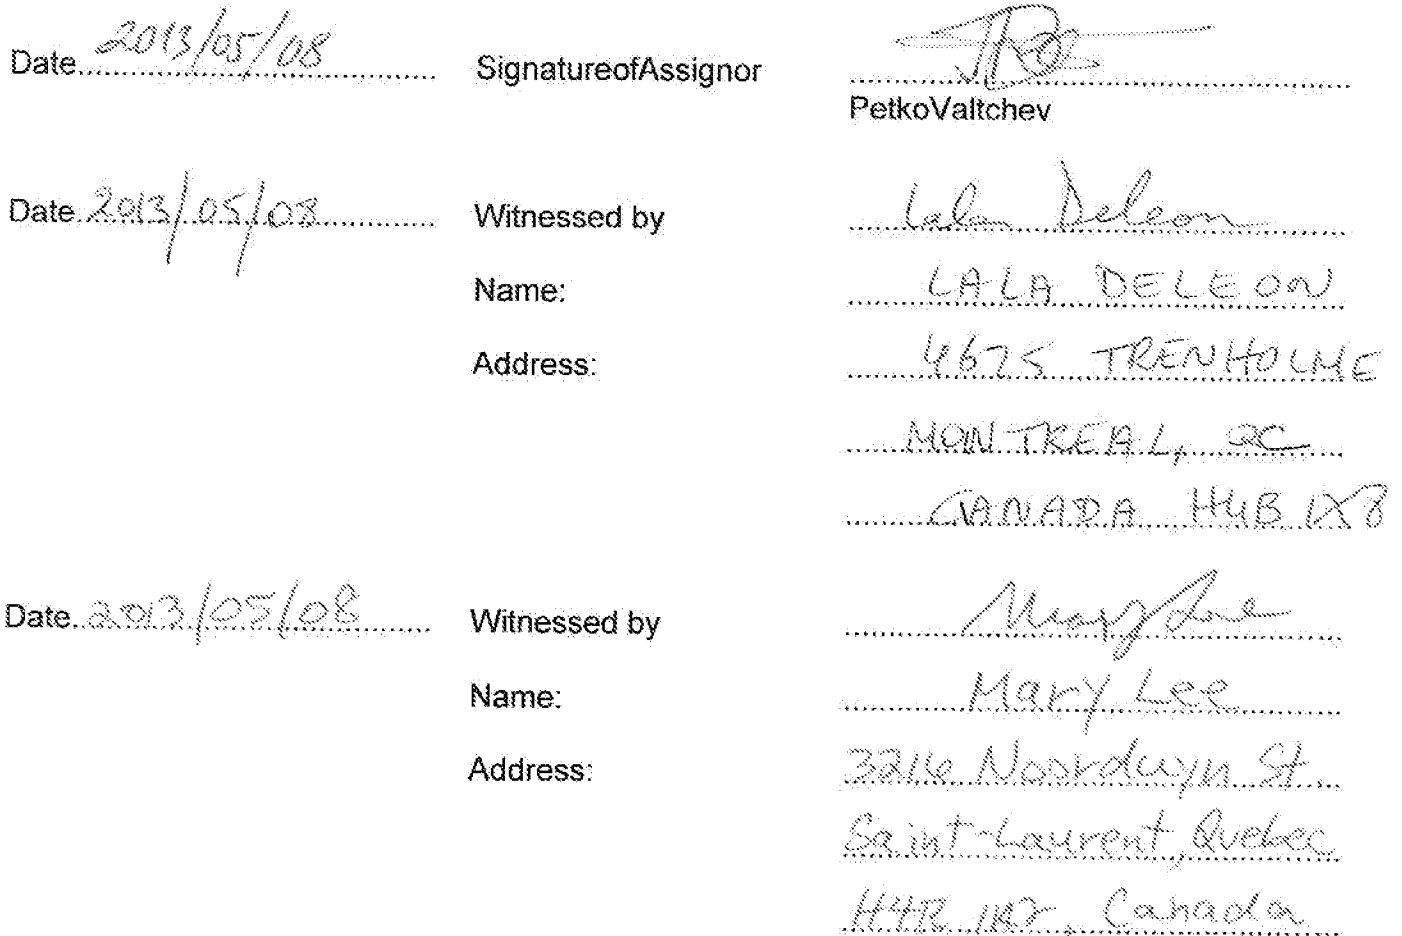 Date 2013/05/08 SignatureofAssignor
PetkoValtchev
Date 2013/05/08 Witnessed by Lala Deleon
Name: LALA DELEON
Address: 4675 TRENHOLME
MONTREAL, QC
CANADA H4B 1X8
Date 2013/05/08 Witnessed by Mary Lee
Name: Mary Lee
Address: 3216 Noorduyn St.
Saint-Laurent, Quebec
H4R Canada